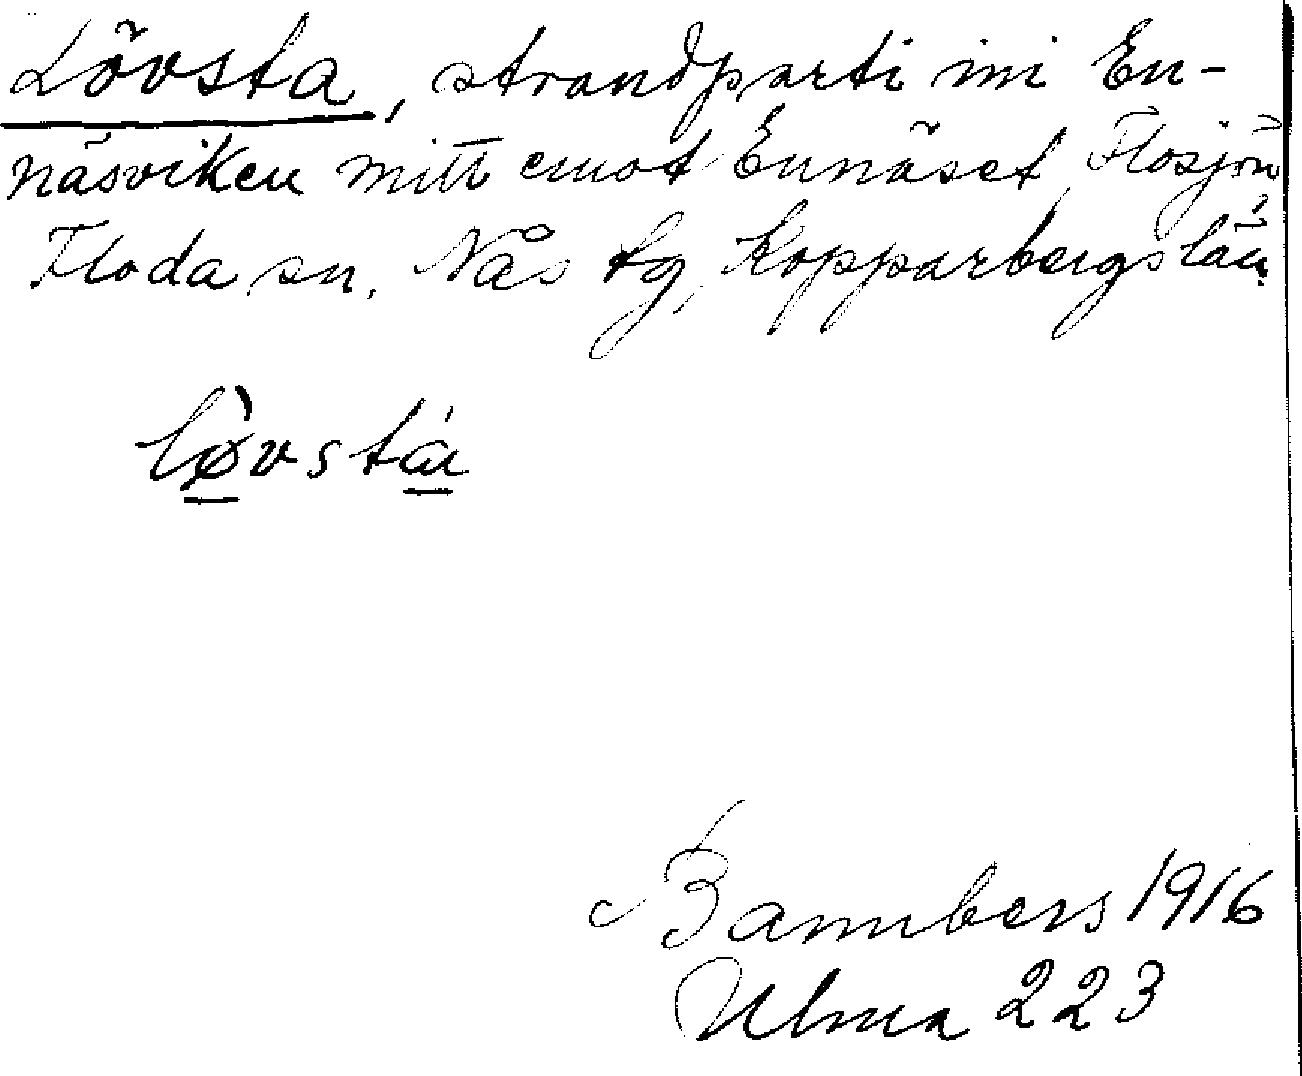 Lövsta, strandparti ini En-
näsviken mitt emot Ennäset, Flosjön
Floda sn, Nås tg, Kopparbergs län.
lø̀vstá
Bannbers 1916
Ulma 223